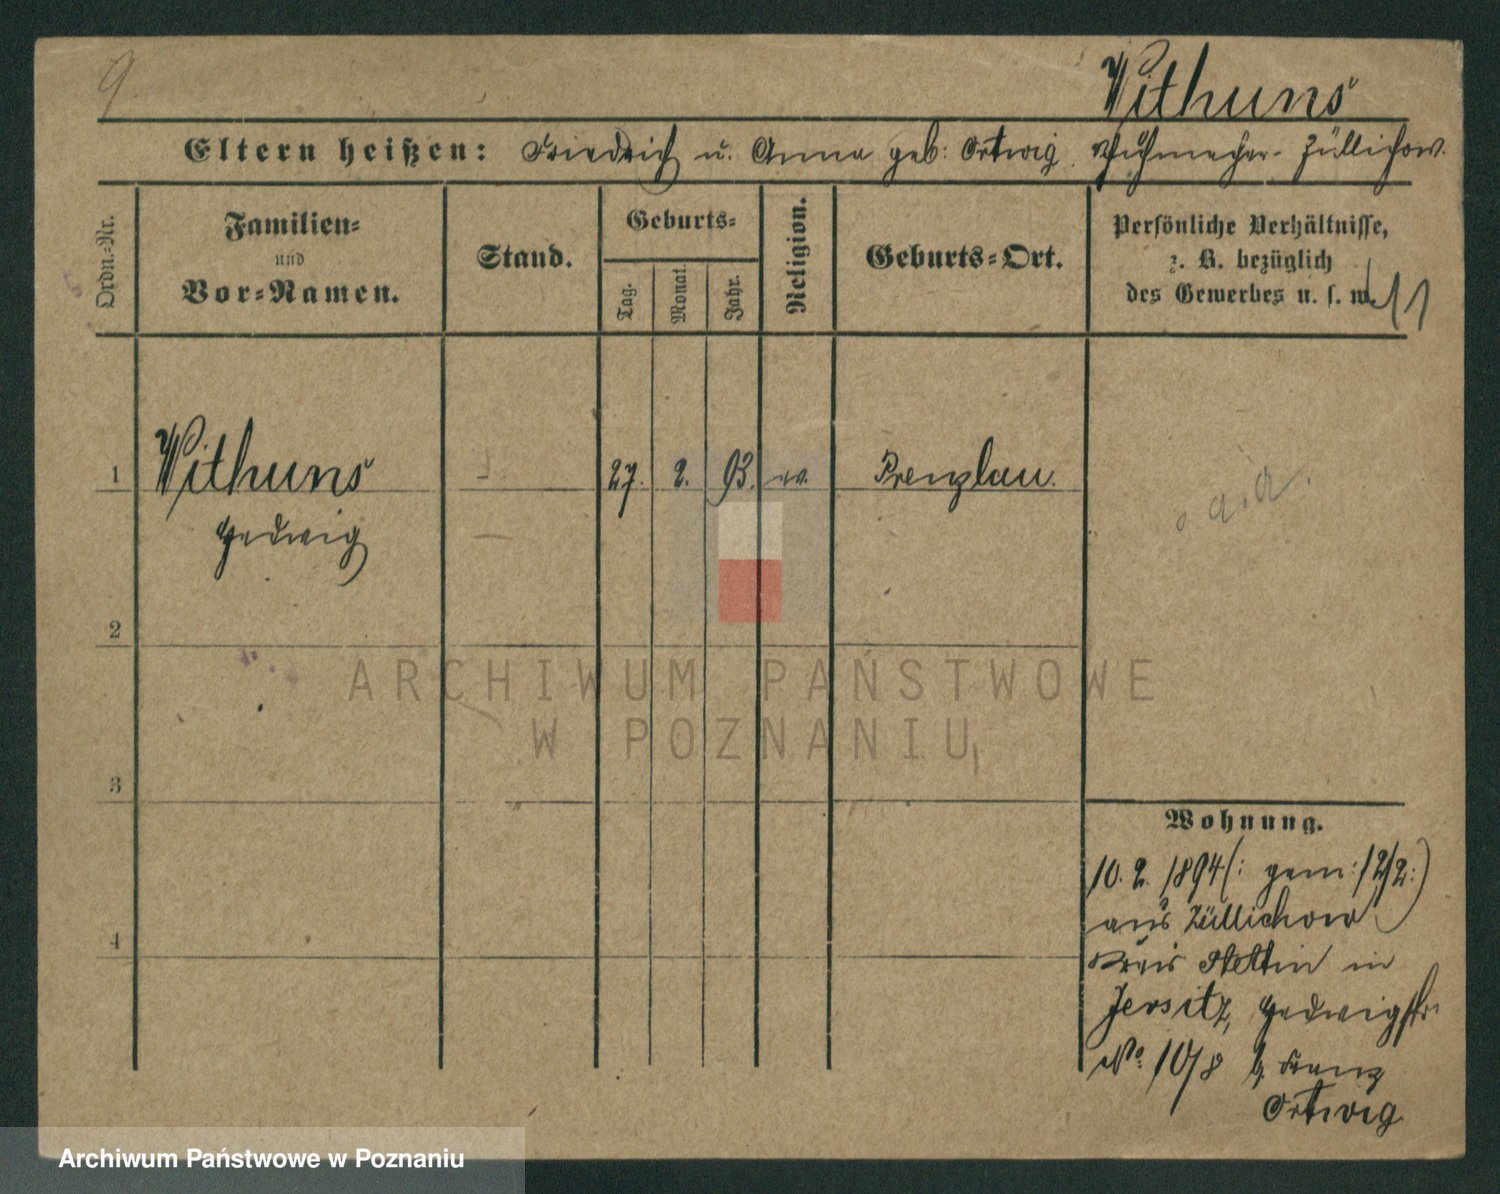 9.
Withuns
Eltern heißen: Friedrich u. Anna geb: Ortwig Schuhmacher- Züllichow.
Ordn.=Nr.
Familien=
und
Vor=Namen.
Stand.
Geburts=
Tag.
Monat.
Jahr.
Religion.
Geburts=Ort.
Persönliche Verhältnisse,
z. B. bezüglich
des Gewerbes u. s. w.
1 Withuns 27. 2. 93. ev. Prenzlau.
Hedwig
2
3
4
Wohnung.
10. 2. 1894 (: gem: 12/2:)
aus Züllichow
Kreis Stettin in
Jersitz, Hedwigstr.
No: 10/8 b. Franz
Ortwig
ARCHIWUM PAŃSTWOWE
W POZNANIU
Archiwum Państwowe w Poznaniu